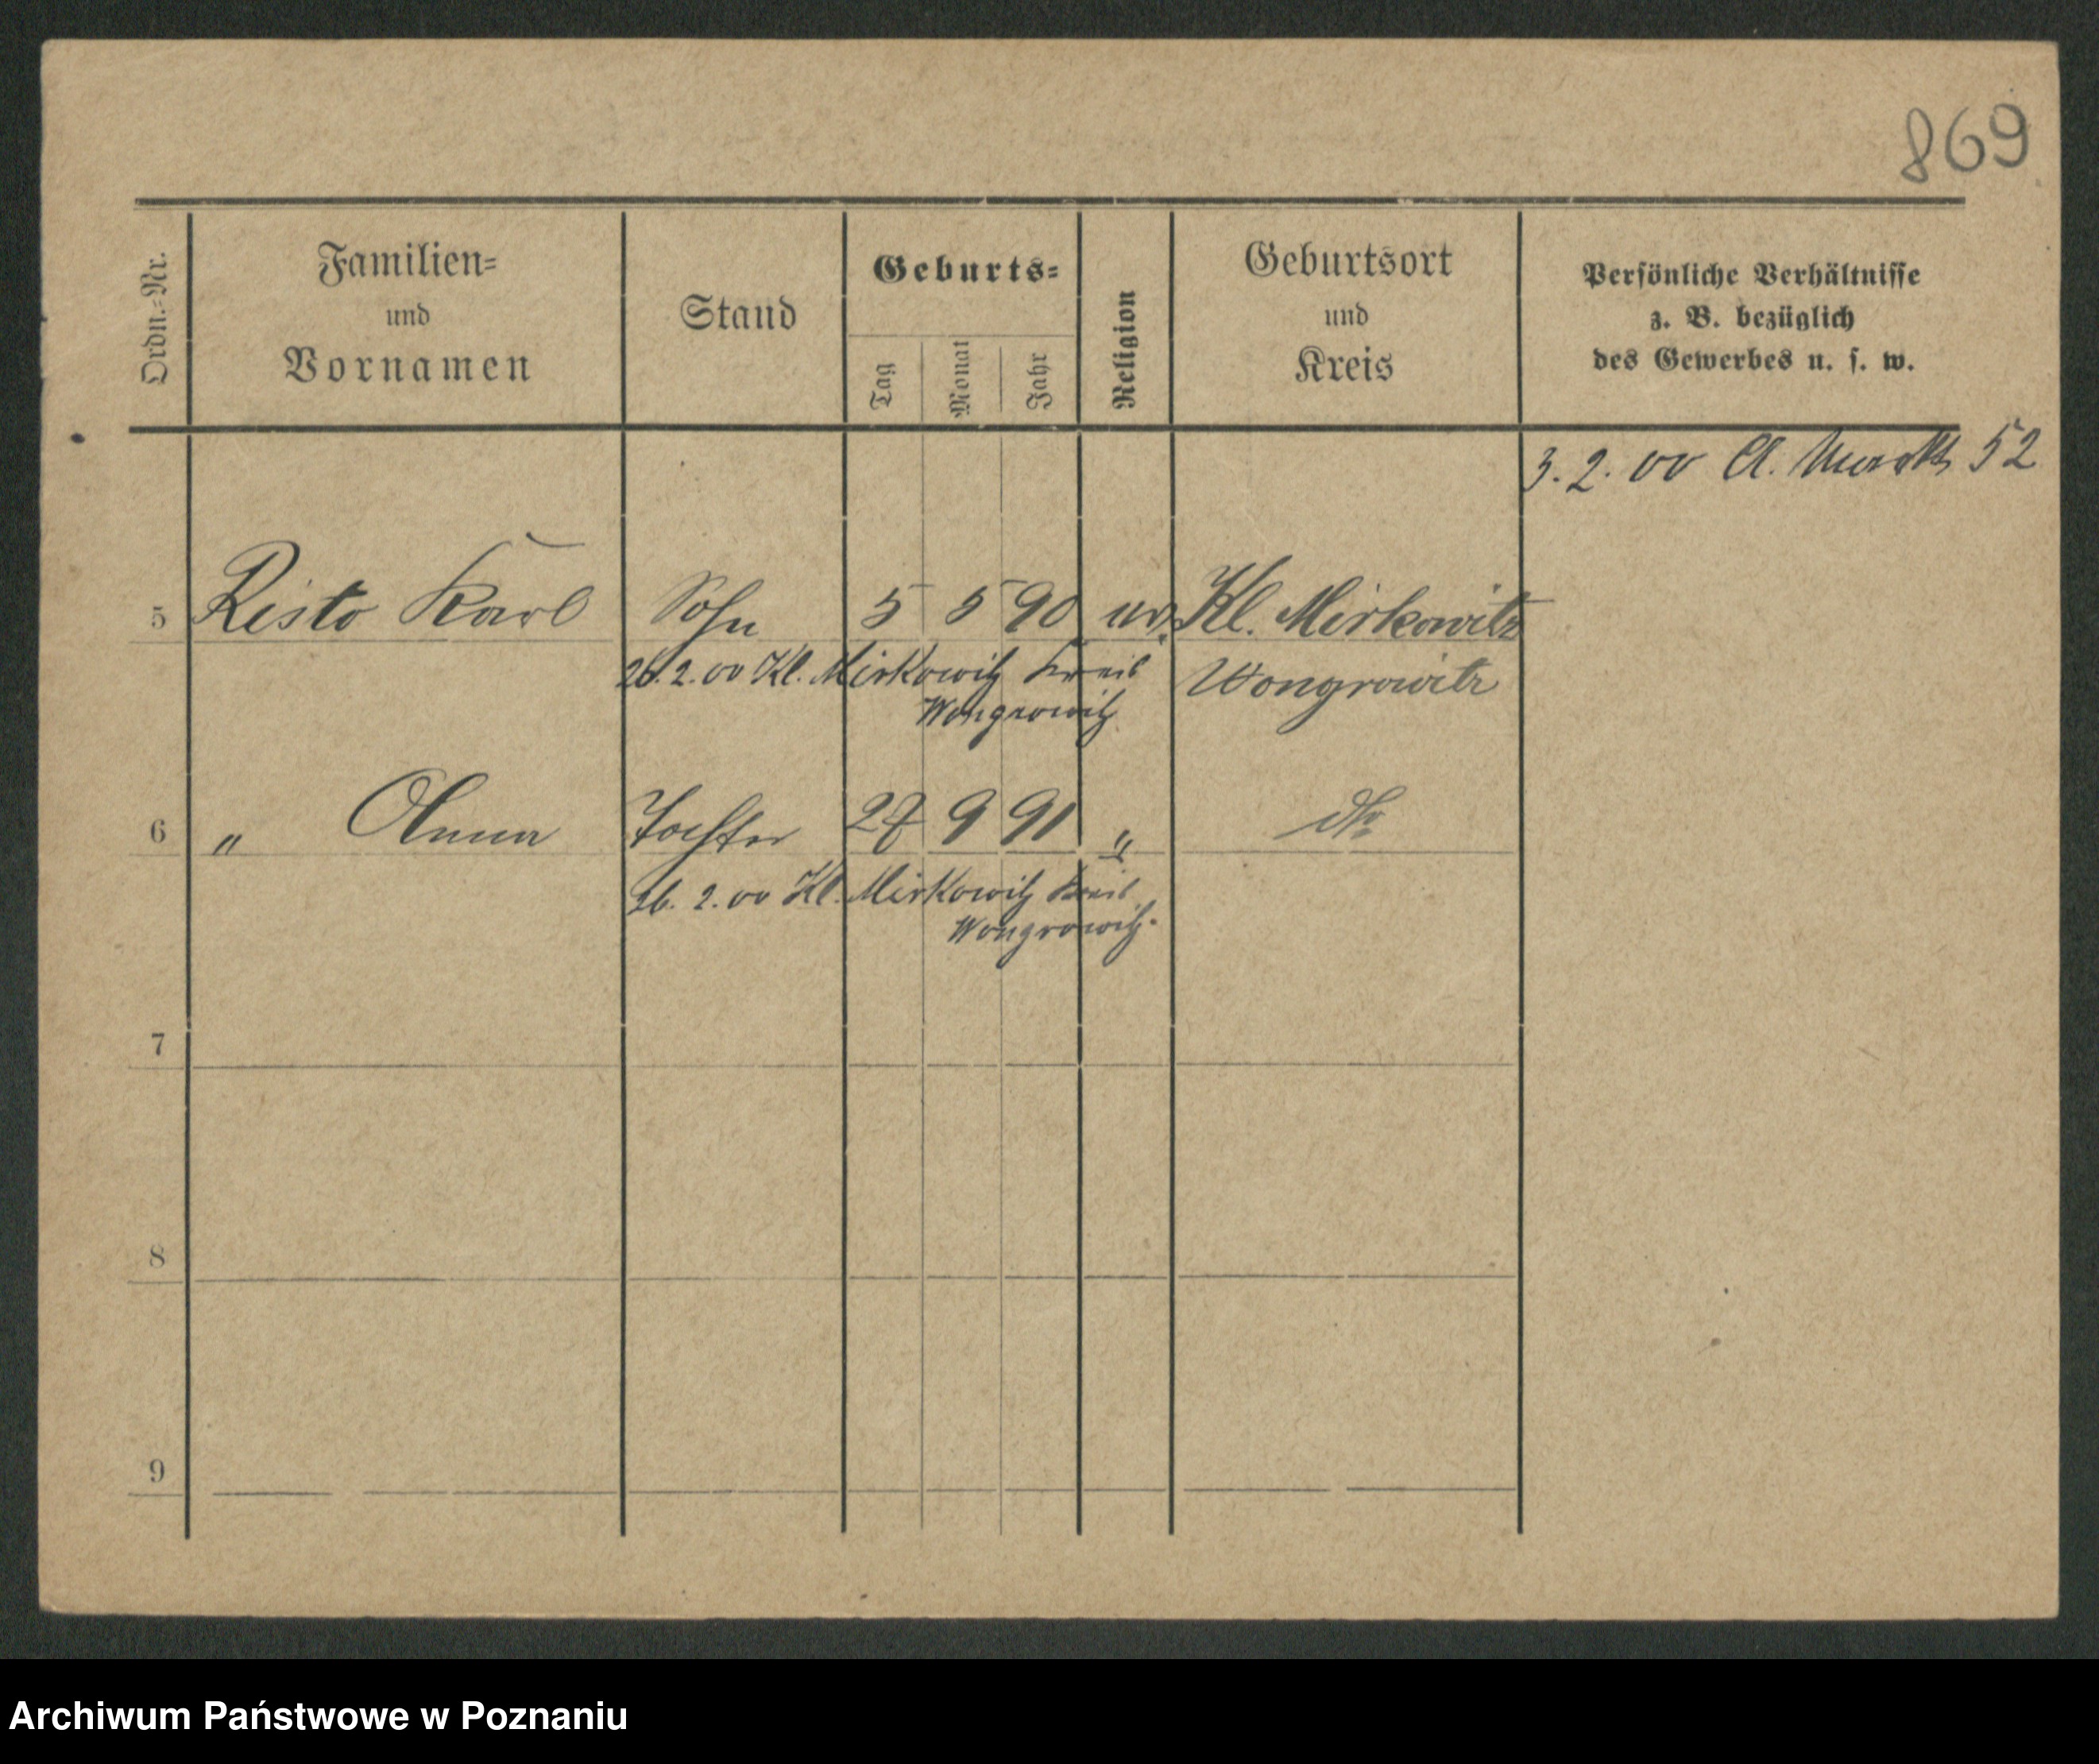 869
Ordn.-Nr.
Familien-
und
Vornamen
Stand
Geburts-
Tag
Monat
Jahr
Religion
Geburtsort
und
Kreis
Persönliche Verhältnisse
z. B. bezüglich
des Gewerbes u. s. w.
3. 2. 00 A. Markt 52
5 Risto Karl Sohn 5 5 90 Kl. Mirkowitz
26. 2. 00 Kl. Mirkowitz Kreis Wongrowitz
Wongrowitz
6 " Anna Tochter 27 9 91 " dto
26. 2. 00 Kl. Mirkowitz Kreis
Wongrowitz.
7
8
9
Archiwum Państwowe w Poznaniu